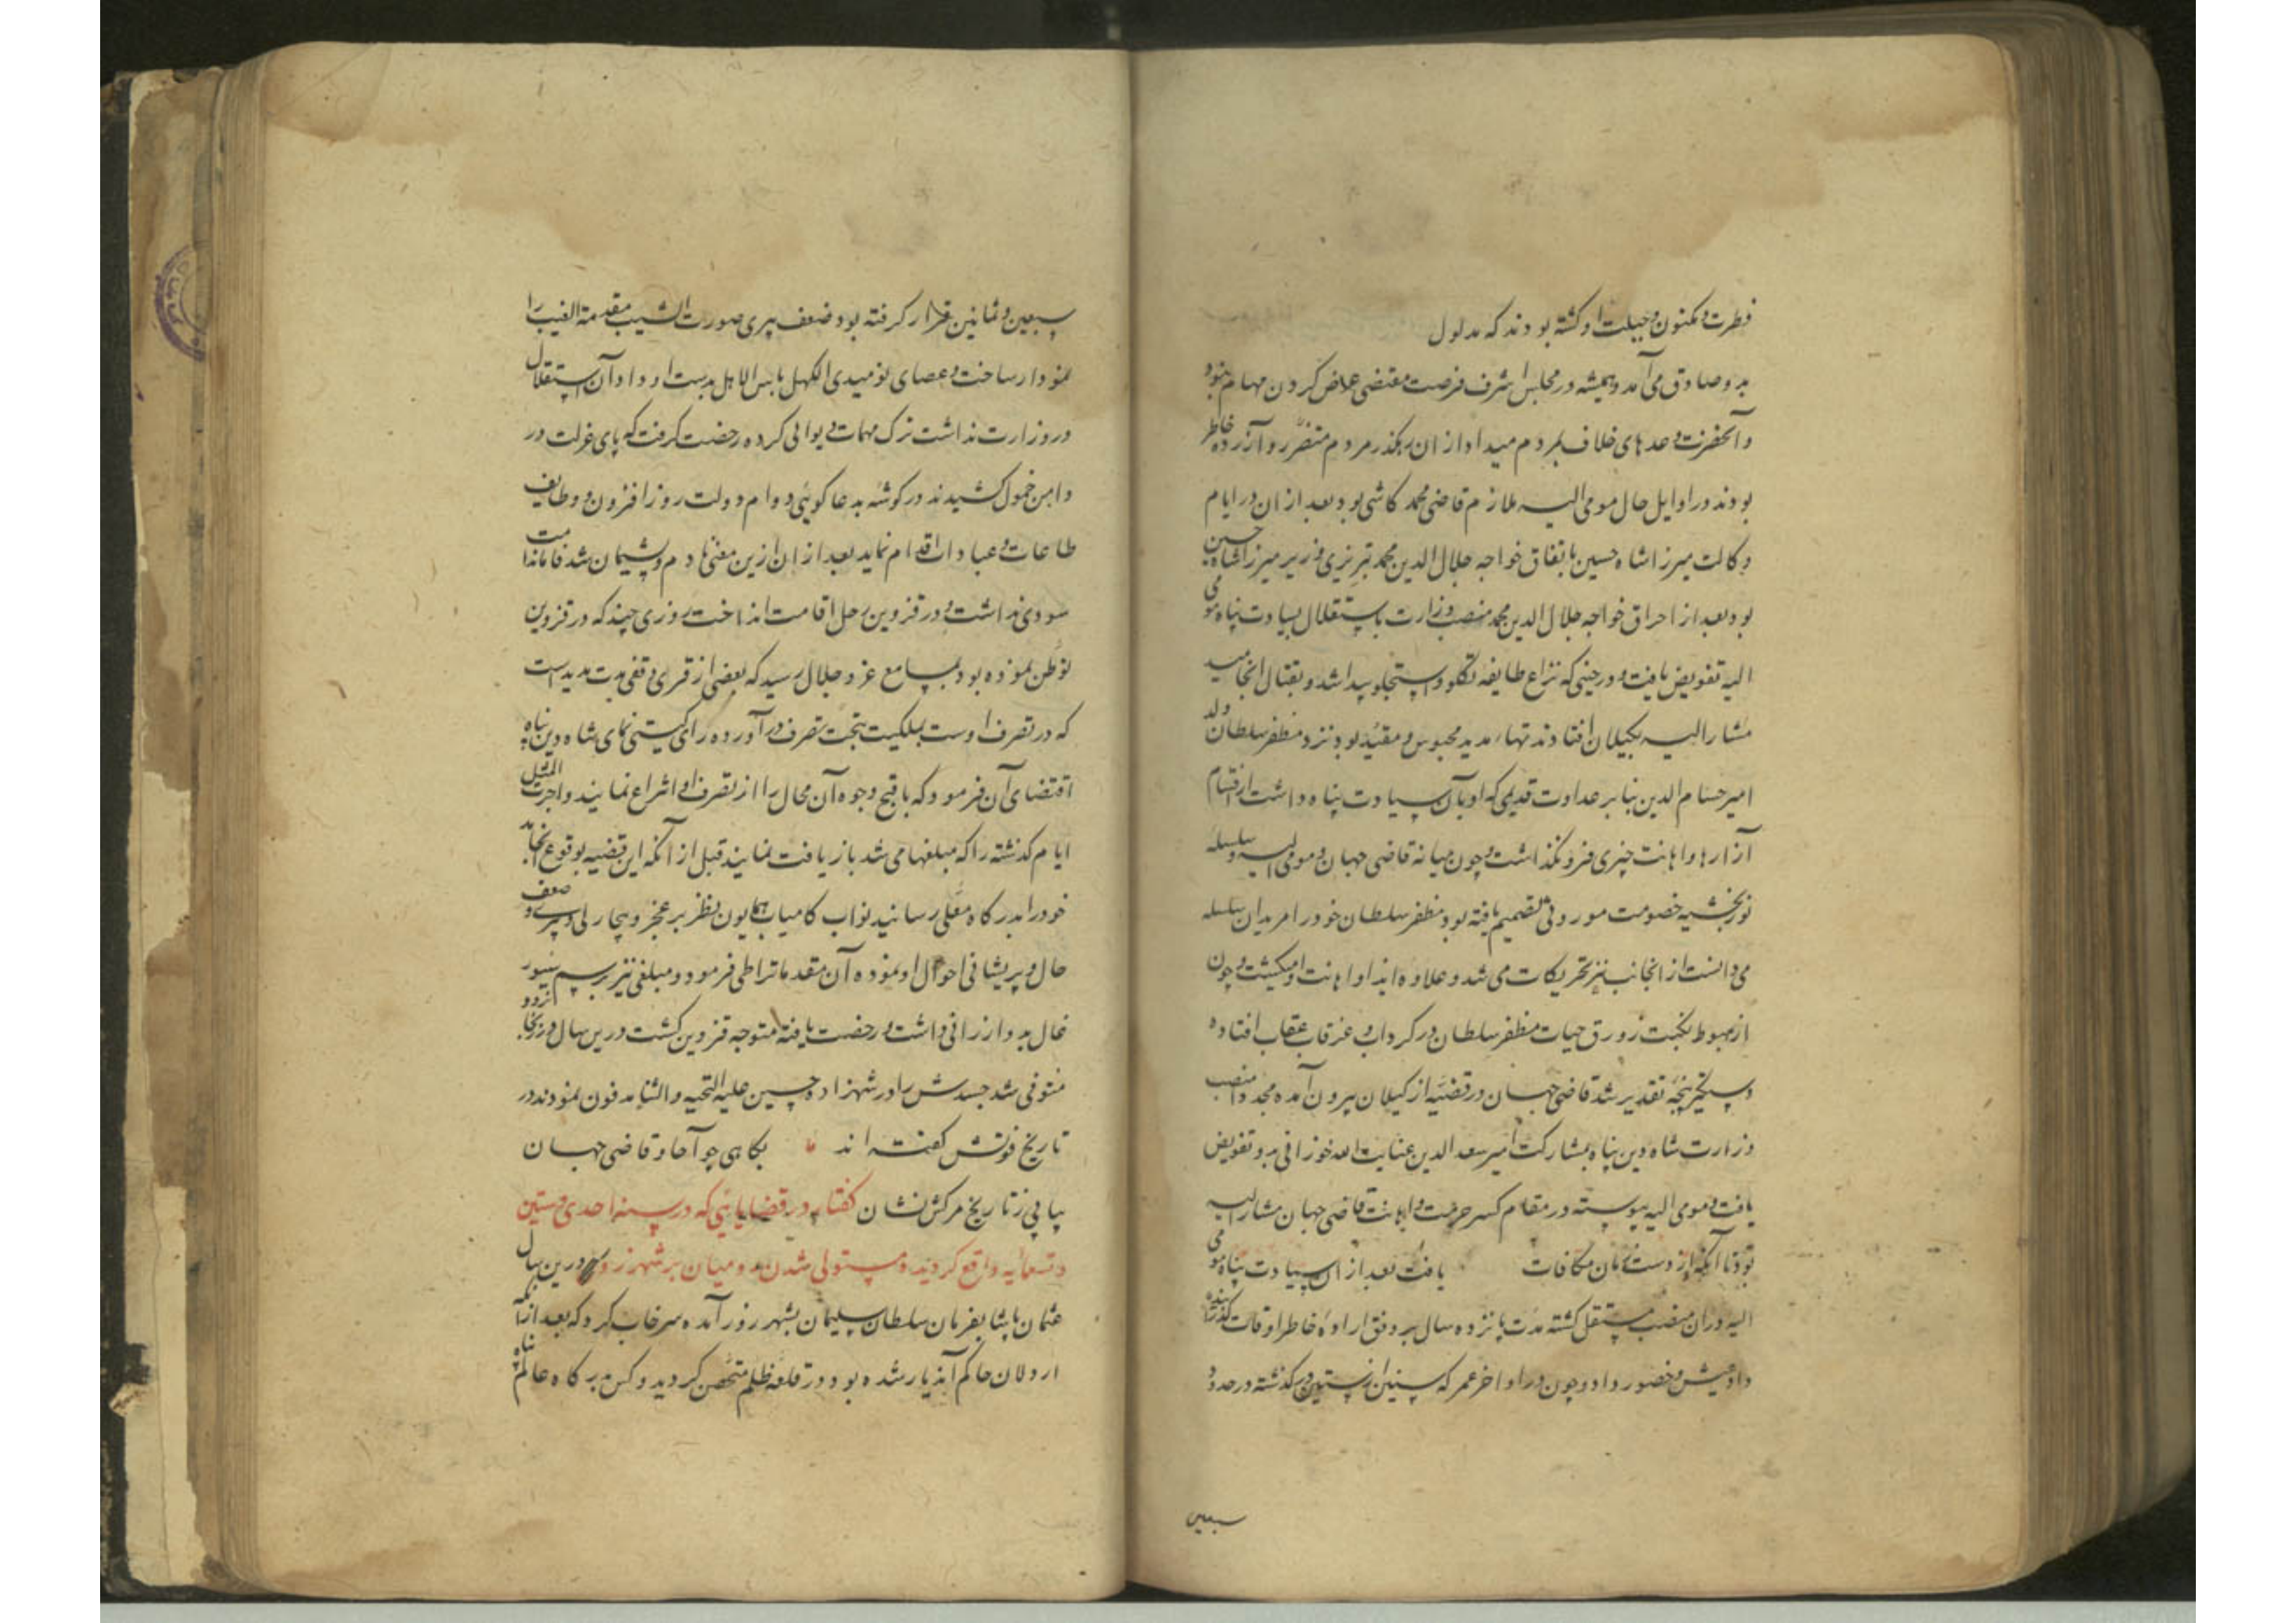 فطرت و مکنون جبلت او کشته بودند که مدلول
بدو صادق می آمد و همیشه در مجلس اشرف فرصت مقتضی عرض کردن مهام نبود
و آنحضرت وعدهای خلاف بمردم میداد از ان رهکذر مردم متضرر و آزرده خاطر
بودند در اوایل حال مومی الیه ملازم قاضی محمد کاشی بود بعد از ان در ایام
وکالت میرزا شاه حسین باتفاق خواجه جلال الدین محمد تبریزی وزیر میرزا شاه حسین
بود بعد از احراق خواجه جلال الدین محمد منصب وزارت باستقلال بسیادت پناه مومی
الیه تفویض یافت و در حینی که نزاع طایفه تکلو و استجلو پیدا شد و بقتال انجامید
مشار الیه بکیلان افتاد مدتهاء مدید محبوس و مقید بود نزد مظفر سلطان ولد
امیر حسام الدین بنابر عداوت قدیمی که او بآن سیادت پناه داشت از اقسام
آزارها و اهانت چیزی فرو نکذاشت و چون میانه قاضی جهان مومی الیه و سلسله
نوربخشیه خصومت موروثی تصمیم یافته بود مظفر سلطان خود را مریدان سلسله
می دانست از انجانب نیز تحریکات می شد و علاوه ایذا و اهانت او میکشت و چون
از هبوط نکبت زورق حیات مظفر سلطان در کرداب غرقاب عقاب افتاده
دستخیر پنجه تقدیر شد قاضی جهان در قضیه از کیلان بیرون آمده مجددا منصب
وزارت شاه دین پناه بمشارکت امیر سعد الدین عنایت الله خوزانی بدو تفویض
یافت و مومی الیه پیوسته در مقام کسر حرمت و اهانت قاضی جهان مشار الیه
بود تا آنکه از دست زمان مکافات یافت بعد از ان سیادت پناه مومی
الیه در ان منصب مستقل کشته مدت پانزده سال بر وفق اراده خاطر اوقات کذرانیده
داد عیش و حضور داد و چون در اواخر عمر که سنین از ستین در کذشته در حدود
سبعین
سبعین و ثمانین قرار کرفته بود ضعف پیری صورت الشیب مقدمة الغیب را
نمودار ساخت و عصای نومیدی الکهل بدست او داد آن استقلال
در وزارت نداشت ترک مهمات دیوانی کرده رخصت کرفت که پای عزلت در
دامن خمول کشیده در کوشه بدعا کوئی دوام دولت روز افزون و وظایف
طاعات و عبادات اقدام نماید بعد از ان ازین معنی نادم و پشیمان شد فاما ندامت
سودی نداشت و در قزوین رحل اقامت انداخت روزی چند که در قزوین
توطن نموده بود بمسامع عز و جلال رسید که بعضی از قری وقفی مدت مدیدست
که در تصرف اوست بملکیت بتحت تصرف در آورده رای کیتی نمای شاه دین پناه
اقتضای آن فرمود که باقبح وجوه آن محال را از تصرف او انتزاع نمایند و اجرت المثل
ایام کذشته را که مبلغها می شد بازیافت نمایند قبل از آنکه این قضیه بوقوع انجامد
خود را بدرکاه معلی رسانید نواب کامیاب همایون نظر بر عجز و بیچارکی و پیری و ضعف
حال و پریشانی احوال او نموده آن مقدمات را طی فرمود و مبلغی نیز برسم سیور
غال بدو ارزانی داشت و رخصت یافته متوجه قزوین کشت درین سال در زنجان
متوفی شد جسدش را در شهزاده حسین علیه التحیه و الثنا مدفون نمودند در
تاریخ فوتش کفته اند بکاهی چو آحاد قاضی جهان
بیابی ز تاریخ مرکش نشان کفتار در قضایائی که در سنه احدی و ستین
و تسعمائه واقع کردید و مستولی شدن رومیان بر شهرزور درین سال
عثمان پاشا بفرمان سلطان سلیمان بشهرزور آمده سرخاب کرد که بعد از آنکه
اردلان حاکم آن دیار شده بود در قلعه ظلم متحصن کردید و کس بدرکاه عالم پناه